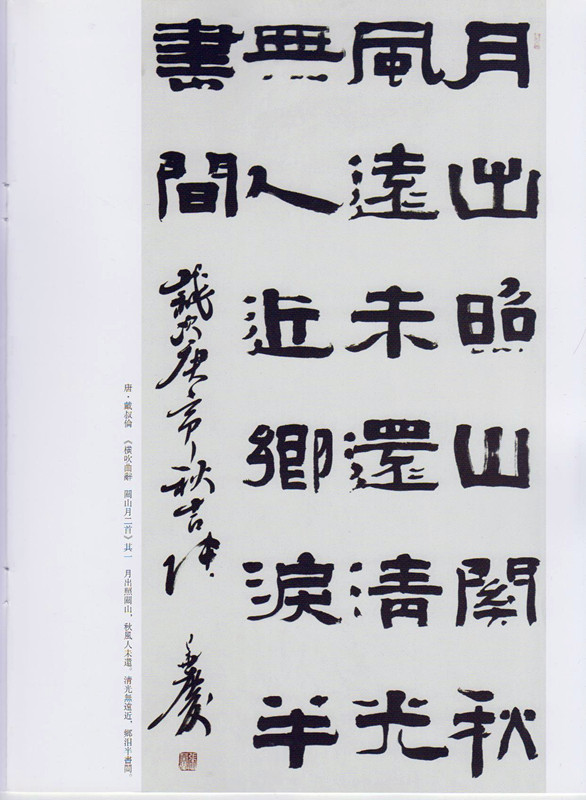 月出照山関秋
風遠未還清光
無人近鄉淚半
書間
庚 秋吉 慶
唐·戴叔倫 《橫吹曲辭 關山月二首》其一 月出照關山，秋風人未還。清光無遠近，鄉泪半書間。